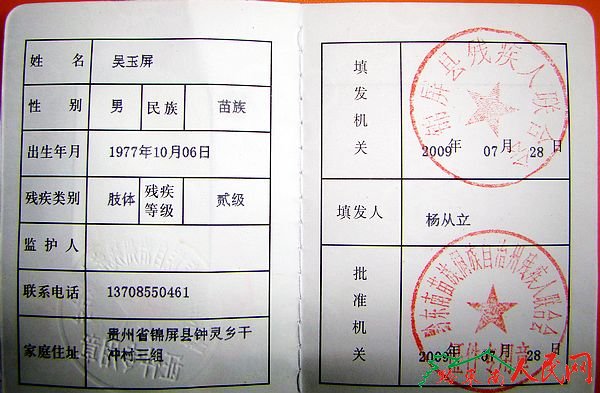 姓 名 吴玉屏
性 别 男 民族 苗族
出生年月 1977年10月06日
残疾类别 肢体 残疾等级 贰级
监 护 人
联系电话 13708550461
家庭住址 贵州省锦屏县钟灵乡干
冲村三组
填发机关
锦屏县残疾人联合会
2009年 07月 28日
填发人 杨从立
批准机关
黔东南苗族侗族自治州残疾人联合会
证件专用章
2009年 07月 28日
人民网